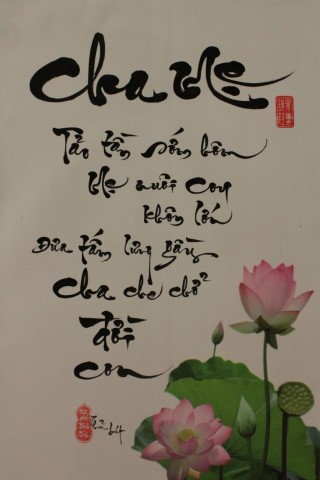 Cha Mẹ
Tảo tần sớm hôm
Mẹ nuôi con
khôn lớn
Đưa tấm lưng gầy
Cha che chở
đời
con